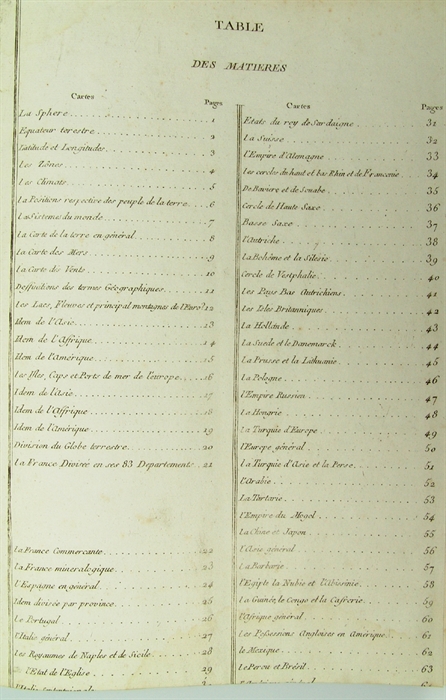 TABLE
DES MATIERES
Cartes Pages
La Sphere 1
Equateur terrestre 2
Latitude et Longitudes 3
Les Zônes 4
Les Climats 5
La Positions respective des peuple de la terre 6
La Sistemes du monde 7
La Carte de la terre en général 8
La Carte des Mers 9
La Carte des Vents 10
Deffinitions des termes Géographiques 11
Les Lacs, Fleuves et principal montagnes de l'Euro? 12
Idem de l'Asie 13
Idem de l'Affrique 14
Idem de l'Amérique 15
Les Isles, Caps et Ports de mer de l'europe 16
Idem de l'Asie 17
Idem de l'Affrique 18
Idem de l'Amérique 19
Division du Globe terrestre 20
La France Divisée en ses 83 Departements 21
La France Commercante 22
La France mineralogique 23
L'Espagne en général 24
Idem divisée par province 25
Le Portugal 26
l'Italie général 27
Les Royaumes de Naples et de Sicile 28
l'Etat de l'Eglise 29
Cartes Pages
Etats du roy de Sardaigne 31
La Suisse 32
l'Empire d'Alemagne 33
Les cercles du haut et bas Rhin et de Franconie 34
De Baviere et de Souabe 35
Cercle de Haute Saxe 36
Basse Saxe 37
l'Autriche 38
La Bohême et la Silesie 39
Cercle de Vestphalie 40
Les Pays Bas Autrichiens 41
Les Isles Britanniques 42
La Hollande 43
La Suede et le Danemarck 44
La Prusse et la Lithuanie 45
La Pologne 46
l'Empire Russien 47
La Hongrie 48
La Turquie d'Europe 49
l'Europe général 50
La Turquie d'Asie et la Perse 51
l'Arabie 52
La Tartarie 53
l'Empire du Mogol 54
La Chine et Japon 55
l'Asie général 56
La Barbarie 57
l'Egipte la Nubie et l'Abissinie 58
La Guinée, le Congo et la Cafrerie 59
l'Afrique général 60
Les Possessions Angloises en Amérique 61
le Mexique 62
Le Perou et Brésil 63